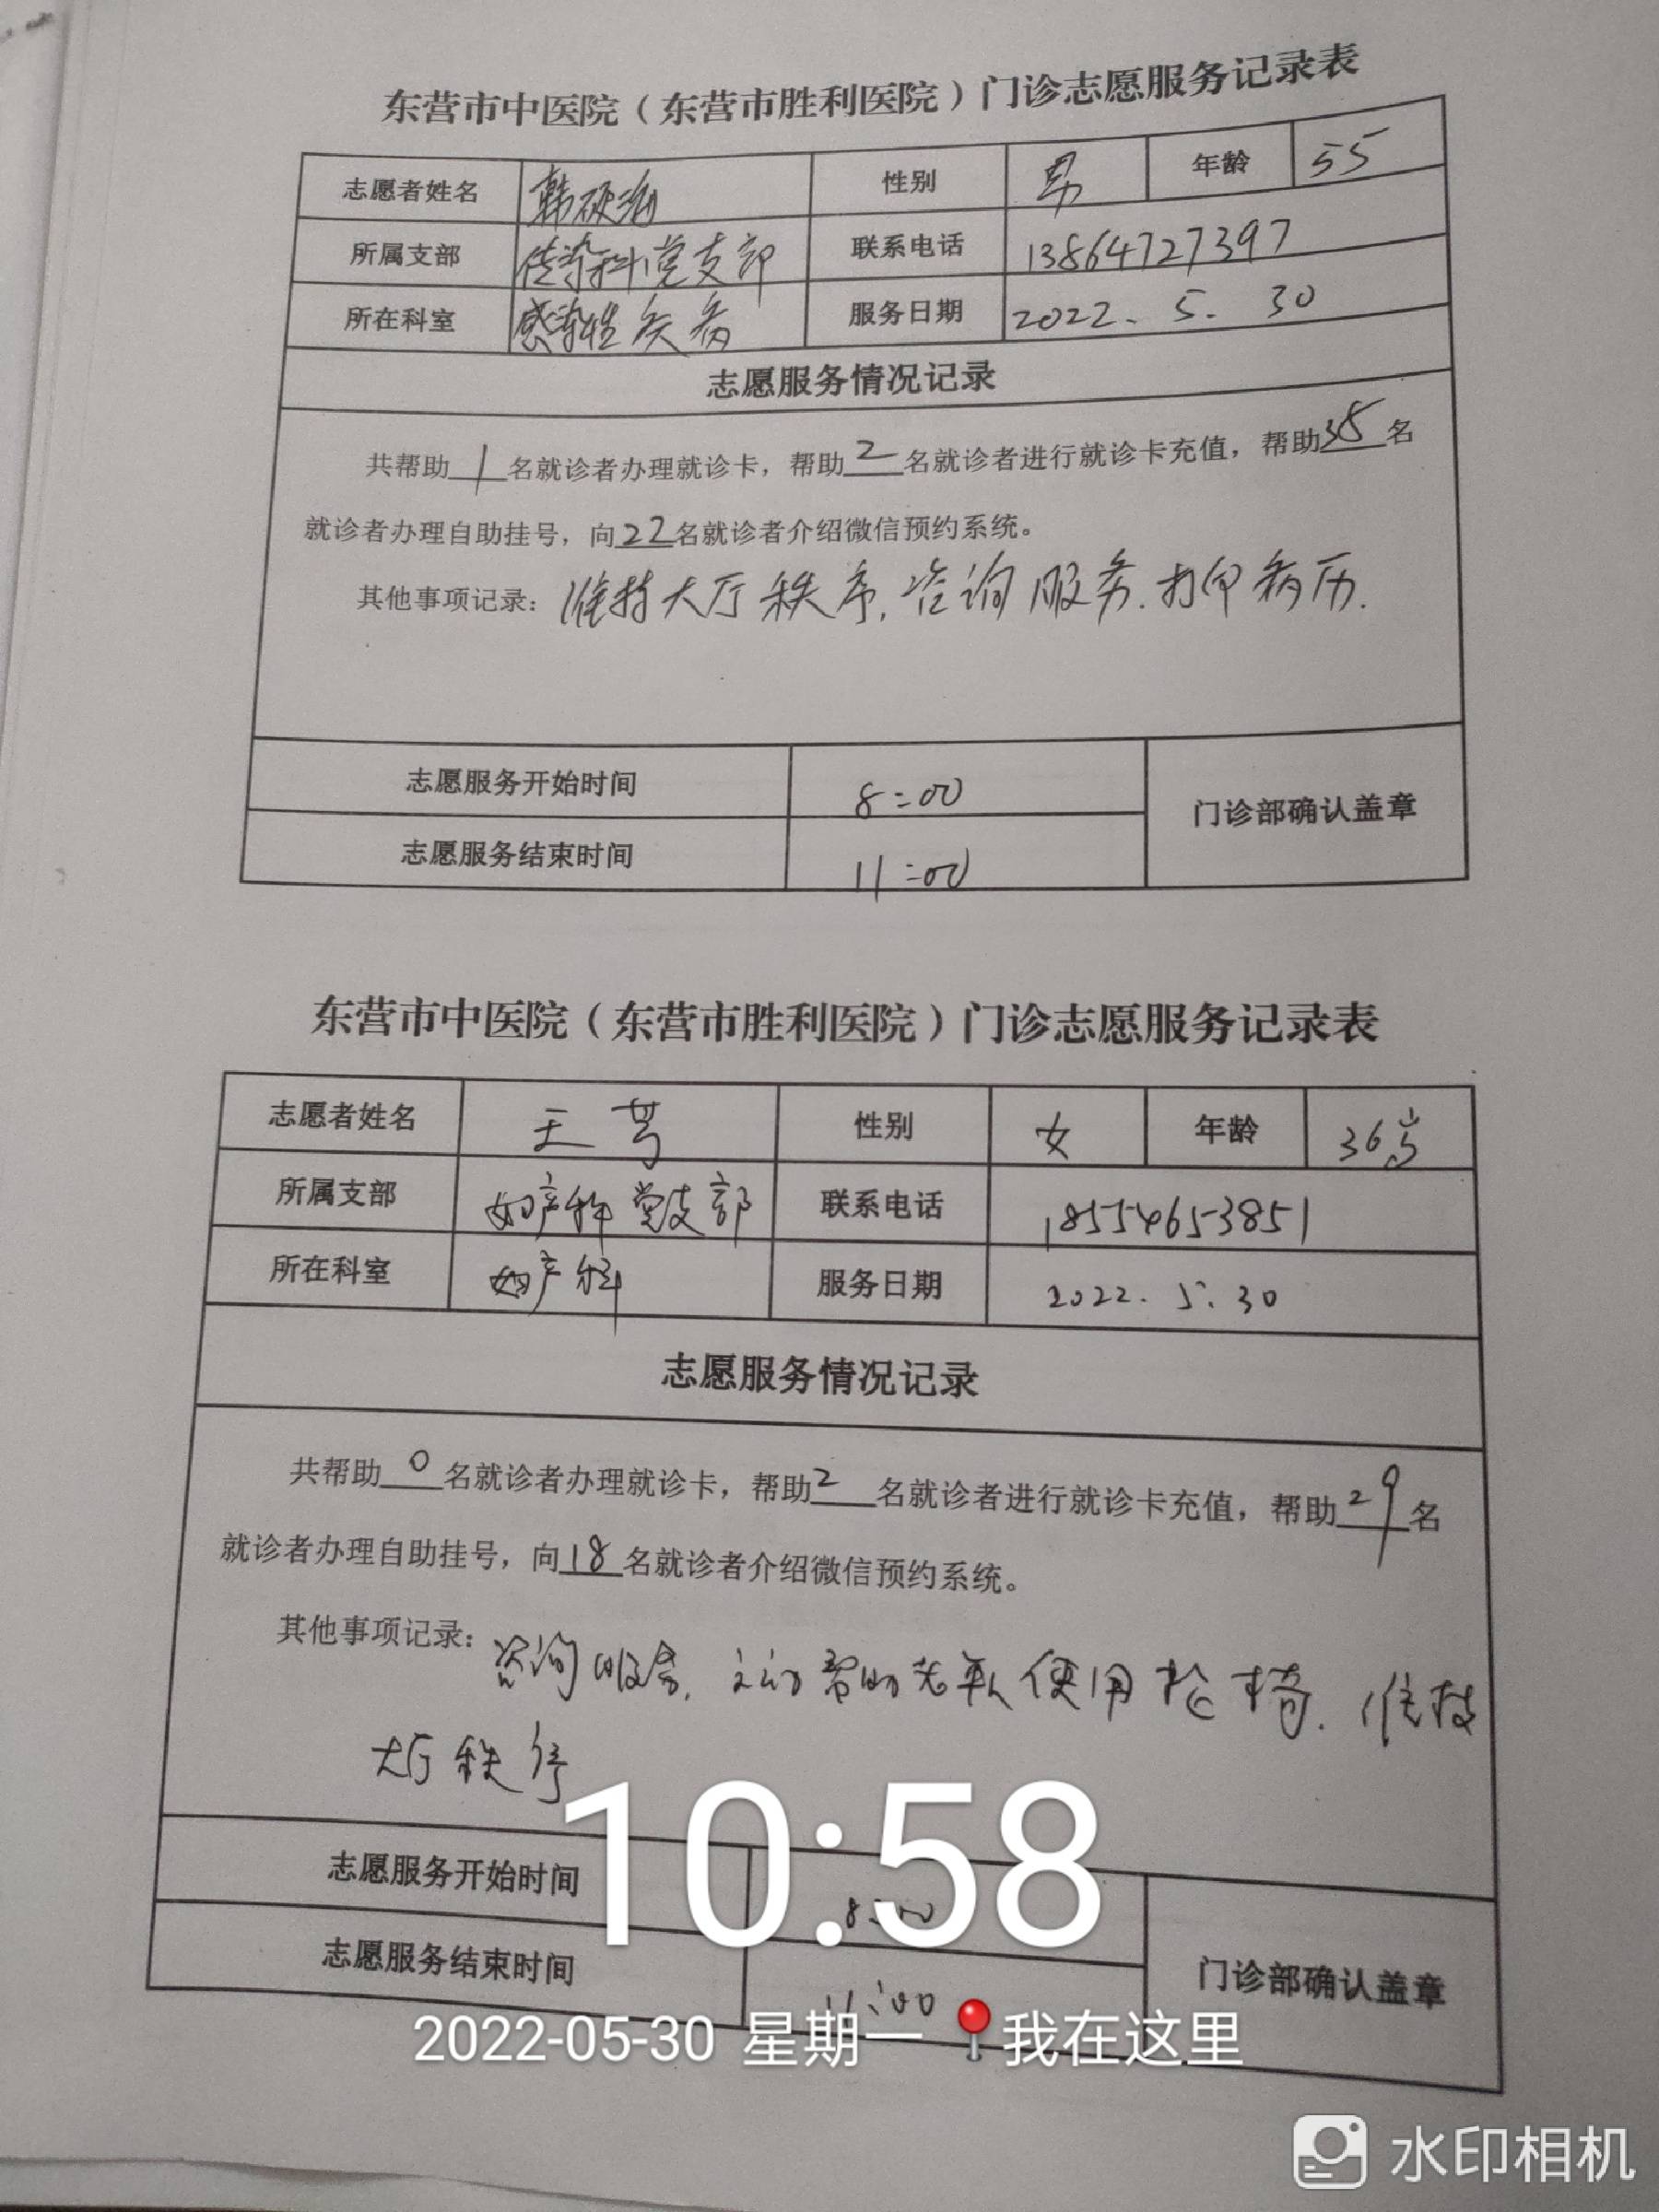 东营市中医院（东营市胜利医院）门诊志愿服务记录表
志愿者姓名 韩硕 性别 男 年龄 55
所属支部 传染科党支部 联系电话 13864727397
所在科室 感染性疾病 服务日期 2022. 5. 30
志愿服务情况记录
共帮助1名就诊者办理就诊卡，帮助2名就诊者进行就诊卡充值，帮助35名
就诊者办理自助挂号，向22名就诊者介绍微信预约系统。
其他事项记录：维持大厅秩序.咨询服务.打印病历.
志愿服务开始时间 8:00 门诊部确认盖章
志愿服务结束时间 11:00
东营市中医院（东营市胜利医院）门诊志愿服务记录表
志愿者姓名 王 性别 女 年龄 36岁
所属支部 妇产科党支部 联系电话 18554653851
所在科室 妇产科 服务日期 2022. 5. 30
志愿服务情况记录
共帮助0名就诊者办理就诊卡，帮助2名就诊者进行就诊卡充值，帮助29名
就诊者办理自助挂号，向18名就诊者介绍微信预约系统。
其他事项记录：咨询服务.主动帮助老年人使用轮椅.维持
大厅秩序
10:58
志愿服务开始时间 8:00 门诊部确认盖章
志愿服务结束时间 11:00
2022-05-30 星期一 我在这里
水印相机